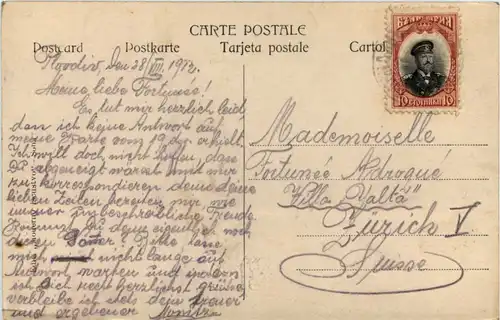 CARTE POSTALE
Postcard Postkarte Tarjeta postale Cartol
БЪЛГАРИЯ
10 СТОТИНКИ 10
Plovdiv, den 28/VIII. 1912.
Meine liebe Fortunée!
Es tut mir herzlich leid,
dass ich keine Antwort auf
meine Karte vom 19. d. erhielt.
Ich will doch nicht hoffen, dass
Du abgeneigt warest mit mir
zu korrespondieren denn deine
lieben Zeilen bereiten mir
immer unbeschreibliche Freude.
Kommst Du denn eigentlich noch
diesen Bitte lasse
mich nicht lange auf
Antwort warten und indem
ich Dich recht herzlichst grüsse
verbleibe ich stets dein treuer
und ergebener
Mademoiselle
Fortunée Adroqué
"Villa Yalta"
Zürich V
Suisse